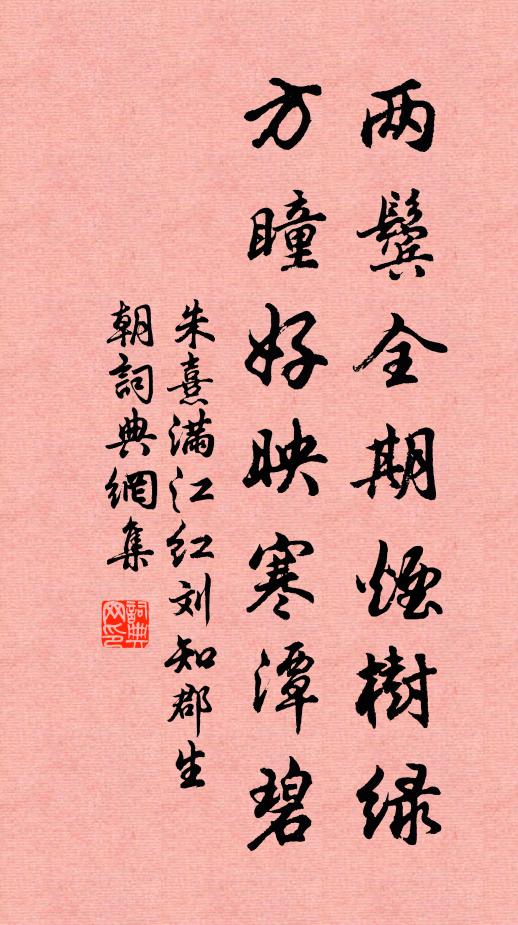 两鬓全期煙樹绿
方瞳好映寒潭碧
朱熹满江红刘知郡生
朝詞典網集
詞典
网印